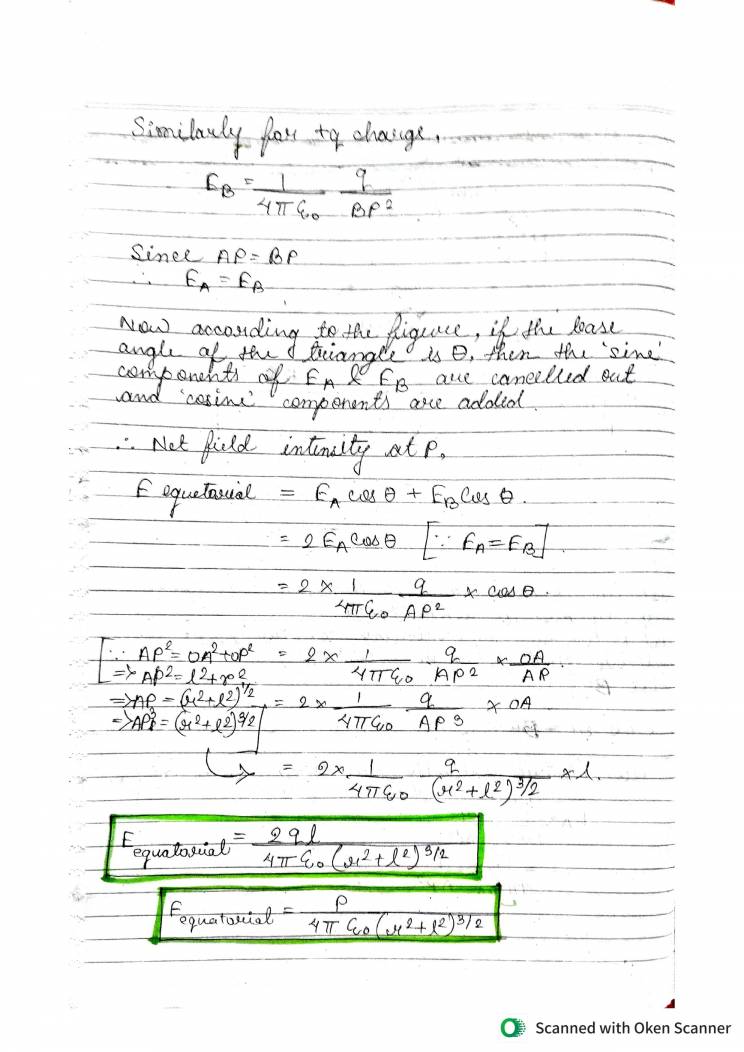 Similarly for +q charge,
E_B = 1/4πε₀ q/BP²
Since AP = BP
∴ E_A = E_B
Now according to the figure, if the base
angle of the triangle is θ, then the 'sine'
components of E_A & E_B are cancelled out
and 'cosine' components are added.
∴ Net field intensity at P,
E equetorial = E_A cos θ + E_B Cos θ.
= 2 E_A Cos θ [∵ E_A = E_B].
= 2 × 1/4πε₀ q/AP² × cos θ.
[∵ AP² = OA² + OP² = 2 × 1/4πε₀ q/AP² × OA/AP
=> AP² = l² + r²
=> AP = (r² + l²)^1/2 = 2 × 1/4πε₀ q/AP³ × OA
=> AP³ = (r² + l²)^3/2
↳ = 2 × 1/4πε₀ q/(r² + l²)^3/2 × l.
E equatorial = 2ql/4πε₀(r² + l²)^3/2
E equatorial = P/4πε₀(r² + l²)^3/2
Scanned with Oken Scanner